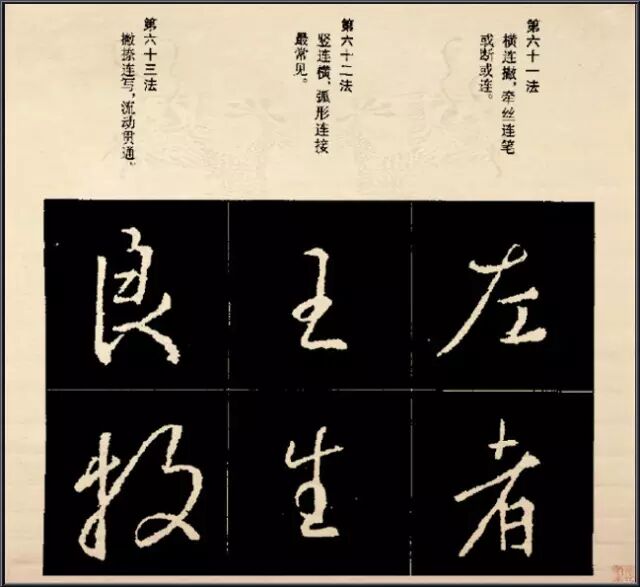 第六十一法
横连撇,牵丝连笔
或断或连。
第六十二法
竖连横,弧形连接
最常见。
第六十三法
撇捺连写,流动贯通。
左
者
王
生
良
牧